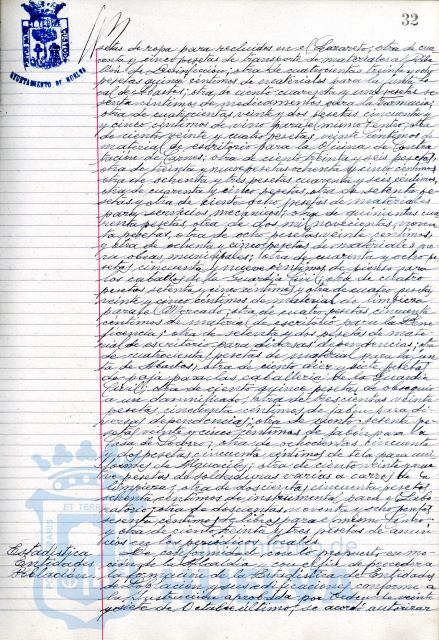 32
AYUNTAMIENTO DE HUELVA
setas de ropa para recluidos en el Lazareto; otra de cua-
renta y cinco pesetas de transporte de materiales al Pabe-
llón de Desinfección; otra de cuatrocientas treinta y ocho
pesetas quince céntimos de materiales para la Junta
cal de Abastos; otra de ciento cuarenta y una pesetas se-
senta céntimos de medicamentos para la Farmacia;
otra de cuatrocientas veinte y dos pesetas cincuenta
y cinco céntimos de vino para el mismo Centro; otra
de ciento veinte y cuatro pesetas veinte céntimos de
material de escritorio para la Oficina de Contra-
tación de Carnes; otra de ciento treinta y seis pesetas;
otra de treinta y nueve pesetas ochenta y cinco céntimos;
otra de ochenta y tres pesetas cuarenta y seis céntimos;
otra de cuarenta y cinco pesetas; otra de setenta pe-
setas y otra de ciento ocho pesetas de materiales
para servicios mecánicos; otra de quinientas cua-
renta pesetas, otra de dos mil novecientas noventa
pesetas, otra de ocho pesetas veinte céntimos,
y otra de ochenta y cinco pesetas de materiales pa-
ra obras municipales; otra de cuarenta y ocho pe-
setas cincuenta y nueve céntimos de pienso para
los caballos de la Guardia Civil; otra de cuatro
pesetas setenta y cinco céntimos y otra de cuatro pesetas
veinte y cinco céntimos de material de limpieza
para el Mercado; otra de cuatro pesetas cincuenta
céntimos de material de escritorio para la Bene-
ficencia; otra de sesenta y dos pesetas de mate-
rial de escritorio para diversas dependencias; otra
de cuatrocientas pesetas de material para la Jun-
ta de Abastos; otra de ciento diez y siete pesetas
de paja para la caballería de la Guardia
Civil; otra de ciento quince pesetas de
a un damnificado; otra de trescientas veinte
pesetas cincuenta céntimos de jabón para di-
versas dependencias; otra de ciento setenta pe-
setas veinte y cinco céntimos de jabón para la
Casa de Socorro; otra de ochocientas cincuenta
y dos pesetas cincuenta céntimos de tela para uni-
formes de Alguacil; otra de ciento veinte y cua-
tro pesetas de soldaduras varias a carros de la
Limpieza; otra de doscientas cincuenta pesetas
ochenta céntimos de instrumental para el Labo-
ratorio; otra de doscientas noventa y ocho pesetas
sesenta céntimos de libros para el mismo Centro
y otra de ciento treinta y tres pesetas de anun-
cios en los periódicos locales.
Estadística
Entidades
Población.
De conformidad con lo propuesto en mo-
ción de la Alcaldía y con el fin de proceder a
la formación de la Estadística de Entidades
de Población y sus edificaciones, conforme a
la Instrucción aprobada por orden de veinte
y siete de Octubre último, se acordó autorizar